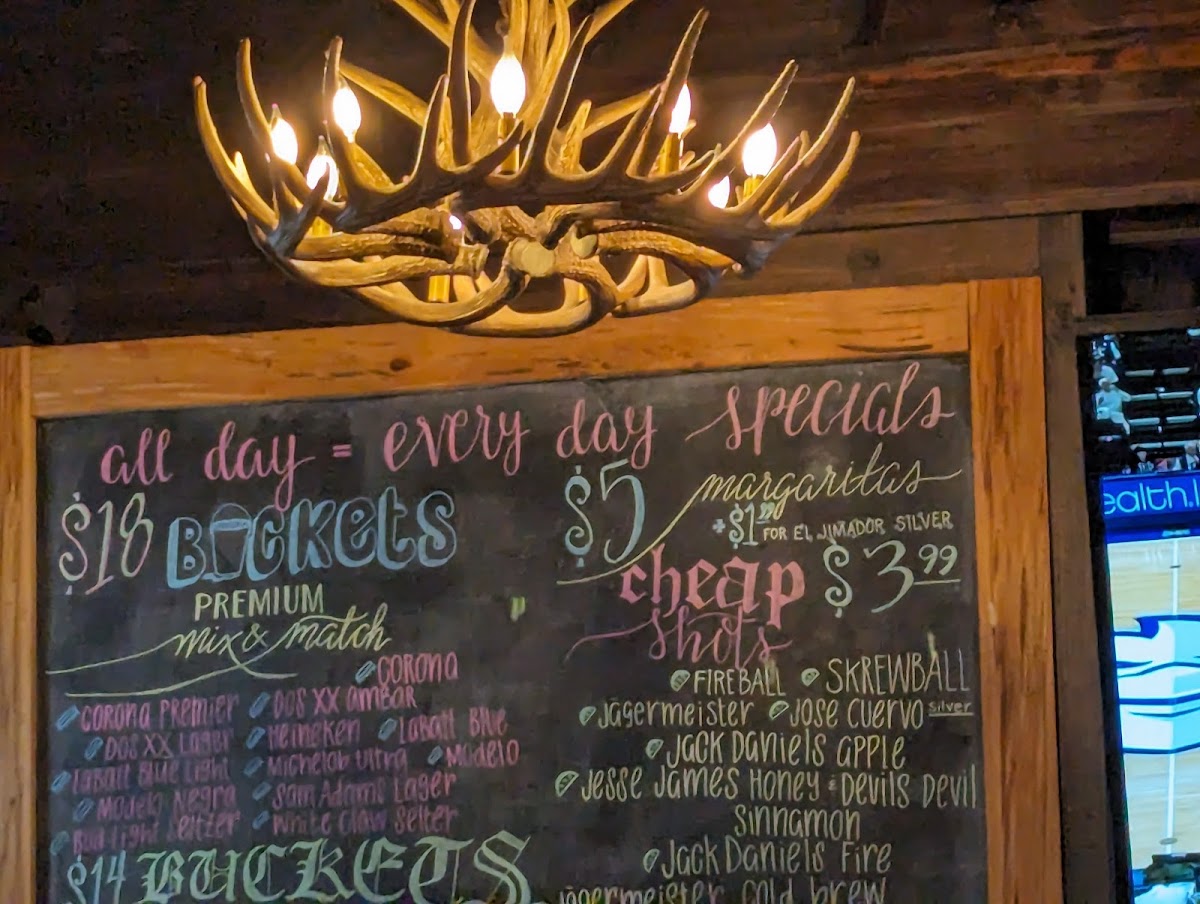 all day = every day specials
$18 BUCKETS
PREMIUM
mix & match
CORONA
CORONA PREMIER DOS XX AMBAR
DOS XX LAGER HEINEKEN LABATT BLUE
LABATT BLUE LIGHT MICHELOB ULTRA MODELO
MODELO NEGRA SAM ADAMS LAGER
BUD LIGHT SELTZER WHITE CLAW SELTER
$14 BUCKETS
$5 margaritas
+$1.00 FOR EL JIMADOR SILVER
cheap shots $3.99
FIREBALL SKREWBALL
Jägermeister JOSE CUERVO silver
JACK DANIELS APPLE
JESSE JAMES HONEY & DEVILS DEVIL
SINNAMON
JACK DANIELS FIRE
Jägermeister cold brew
ealth.